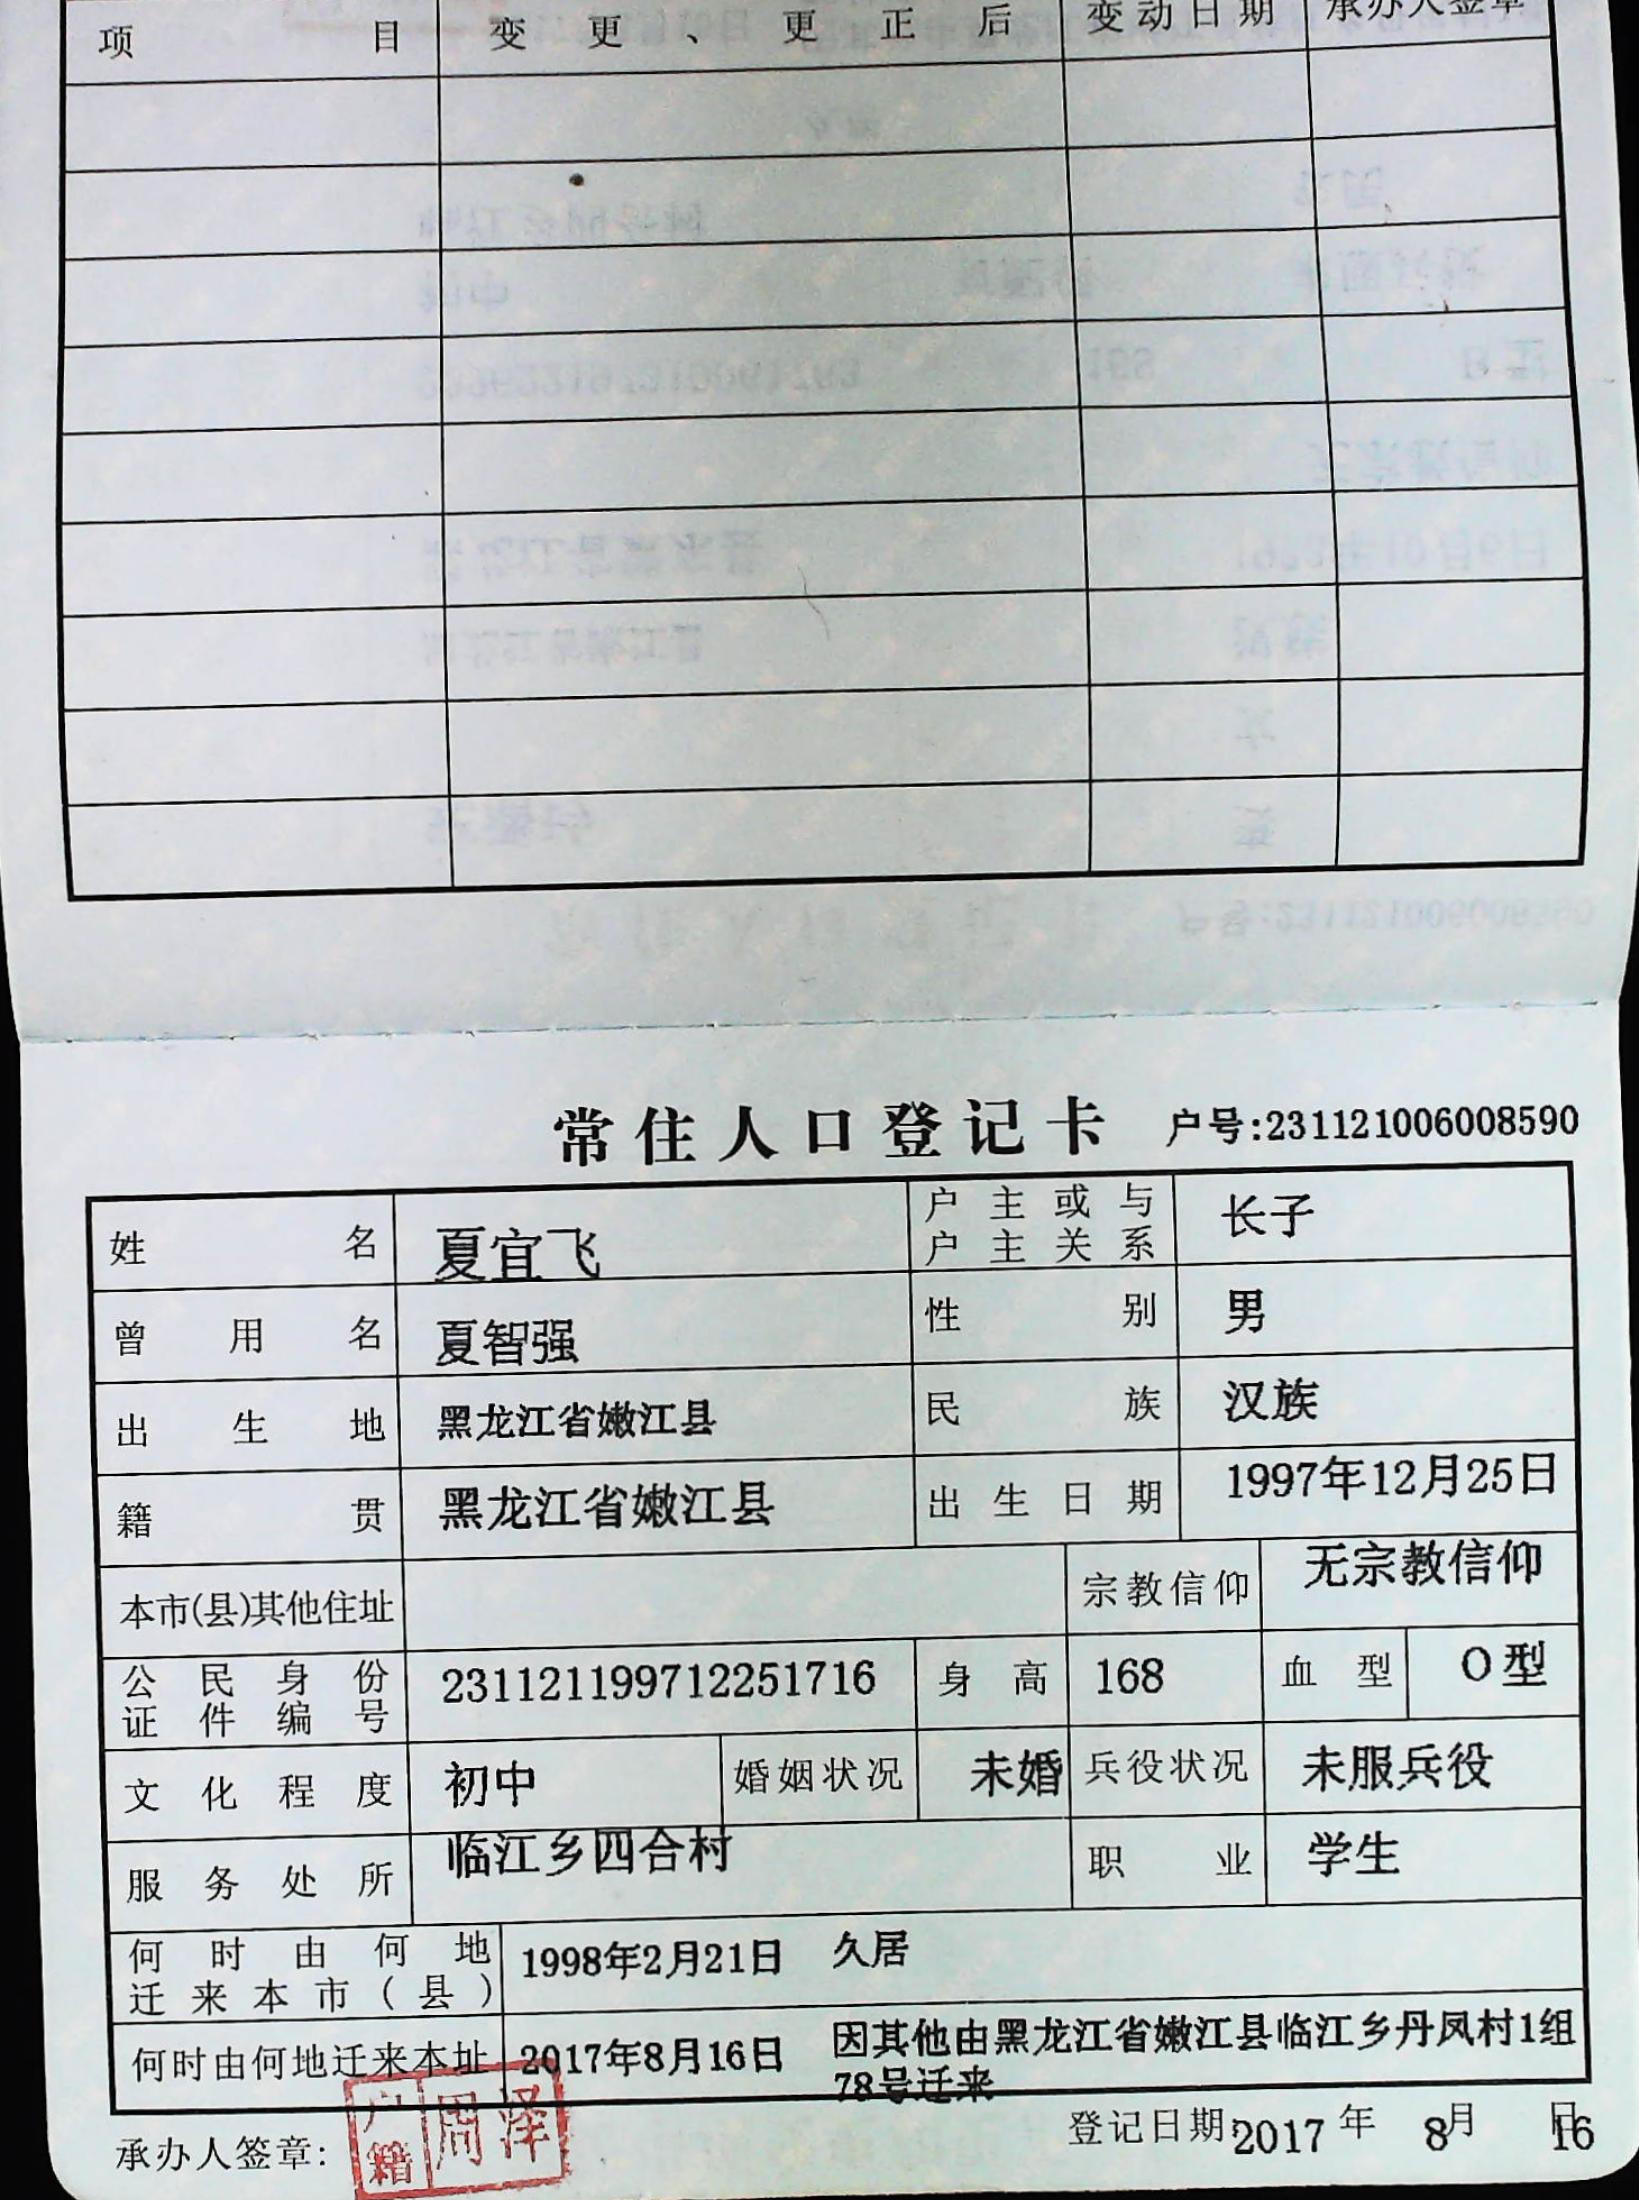 项 目 变更、更正后 变动日期 承办人签章
常住人口登记卡 户号:231121006008590
姓名 夏宜飞 户主或与户主关系 长子
曾用名 夏智强 性别 男
出生地 黑龙江省嫩江县 民族 汉族
籍贯 黑龙江省嫩江县 出生日期 1997年12月25日
本市(县)其他住址 宗教信仰 无宗教信仰
公民身份证件编号 231121199712251716 身高 168 血型 O型
文化程度 初中 婚姻状况 未婚 兵役状况 未服兵役
服务处所 临江乡四合村 职业 学生
何时由何地迁来本市(县) 1998年2月21日 久居
何时由何地迁来本址 2017年8月16日 因其他由黑龙江省嫩江县临江乡丹凤村1组
78号迁来
承办人签章: 户籍 周泽 登记日期 2017年 8月 16日